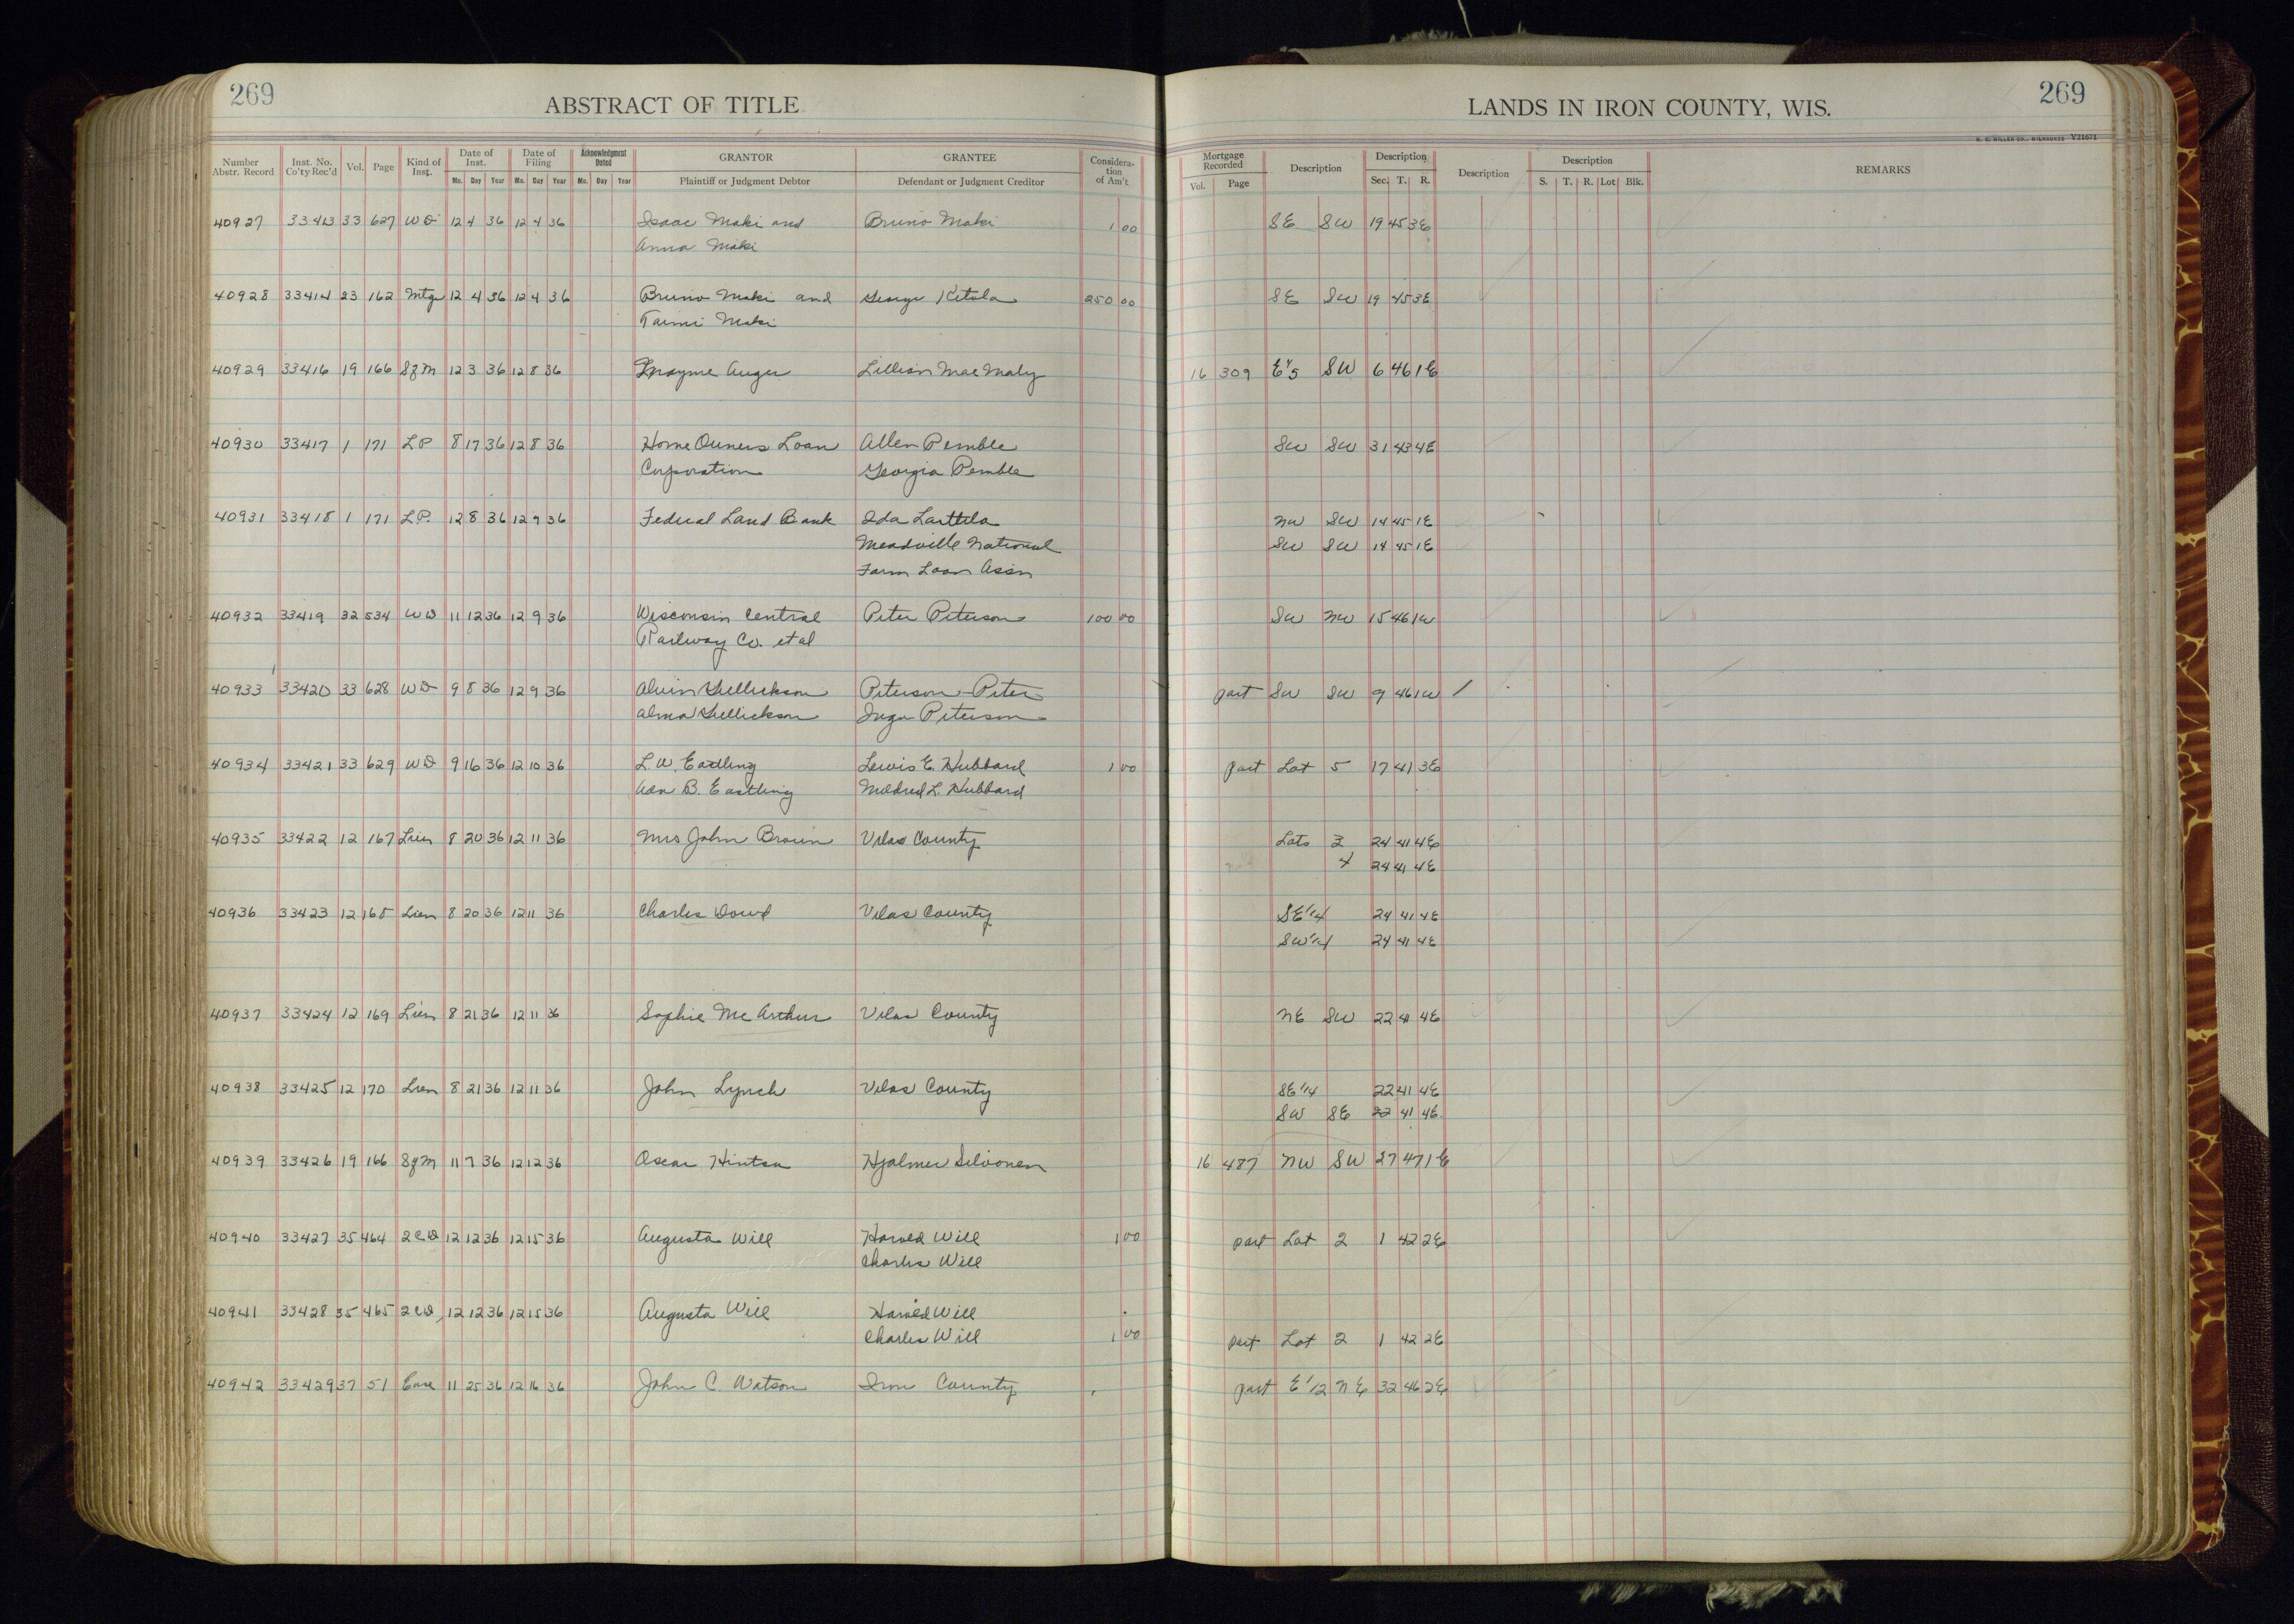 269
ABSTRACT OF TITLE
LANDS IN IRON COUNTY, WIS.
269
H. C. MILLER CO., MILWAUKEE Y21671
Number Abstr. Record Inst. No. Co'ty Rec'd Vol. Page Kind of Inst. Date of Inst. Mo. Day Year Date of Filing Mo. Day Year Acknowledgment Dated Mo. Day Year GRANTOR Plaintiff or Judgment Debtor GRANTEE Defendant or Judgment Creditor Considera-tion of Am't Mortgage Recorded Vol. Page Description Description Sec. T. R. Description Description S. T. R. Lot Blk. REMARKS
40927 33413 33 627 WD 12 4 36 12 4 36 Isaac Maki and Bruno Maki 1 00 SE SW 19 45 3E
Anna Maki
40928 33414 23 162 Mtge 12 4 36 12 4 36 Bruno Maki and George Ketola 250 00 SE SW 19 45 3E
Taimi Maki
40929 33416 19 166 SgM 12 3 36 12 8 36 Mayme Auger Lillian Mae Maly 16 309 SW 6 46 1E
40930 33417 1 171 LP 8 17 36 12 8 36 Home Owners Loan Allen Pemble SW SW 31 43 4E
Corporation Georgia Pemble
40931 33418 1 171 L.P. 12 8 36 12 9 36 Federal Land Bank Ida Larttila NW SW 14 45 1E
Meadville National SW SW 14 45 1E
Farm Loan Assn
40932 33419 32 534 WD 11 12 36 12 9 36 Wisconsin Central Peter Peterson 100 00 SW NW 15 46 1W
Railway Co. et al
40933 33420 33 628 WD 9 8 36 12 9 36 Alvin Gullickson Peterson - Peter part SW SW 9 46 1W /
Alma Gullickson Inga Peterson
40934 33421 33 629 WD 9 16 36 12 10 36 L. W. Eastling Lewis E. Hubbard 1 00 part Lot 5 17 41 3E
B. Eastling Mildred L. Hubbard
40935 33422 12 167 Lien 8 20 36 12 11 36 Mrs John Brown Vilas County Lots 3 24 41 4E
4 24 41 4E
40936 33423 12 168 Lien 8 20 36 12 11 36 Charles Dowd Vilas County SE 1/4 24 41 4E
SW 1/4 24 41 4E
40937 33424 12 169 Lien 8 21 36 12 11 36 Sophie McArthur Vilas County NE SW 22 41 4E
40938 33425 12 170 Lien 8 21 36 12 11 36 John Lynch Vilas County SE 1/4 22 41 4E
SW SE 22 41 4E
40939 33426 19 166 SgM 11 7 36 12 12 36 Oscar Hintsa Hjalmer Silvonen 16 487 NW SW 27 47 1E
40940 33427 35 464 2CD 12 12 36 12 15 36 Augusta Will Harold Will 1 00 part Lot 2 1 42 2E
Charles Will
40941 33428 35 465 2CD 12 12 36 12 15 36 Augusta Will Harold Will
Charles Will 1 00 part Lot 2 1 42 2E
40942 33429 37 51 Ease 11 25 36 12 16 36 John C. Watson Iron County part E 1/2 NE 32 46 2E